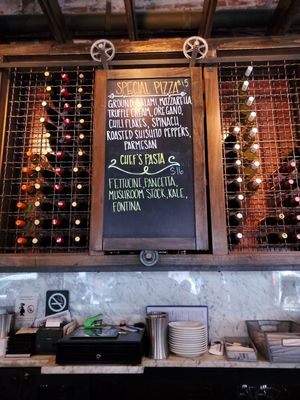 SPECIAL PIZZA $15
GROUND SALAMI, MOZZARELLA,
TRUFFLE CREAM, OREGANO,
CHILI FLAKES, SPINACH,
ROASTED SHISHITO PEPPERS,
PARMESAN
CHEF'S PASTA
$16
FETTUCINE, PANCETTA,
MUSHROOM STOCK, KALE,
FONTINA